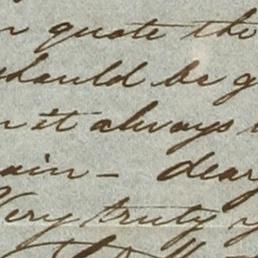 quote the
should be g
it always
ain - dear
Very truly y